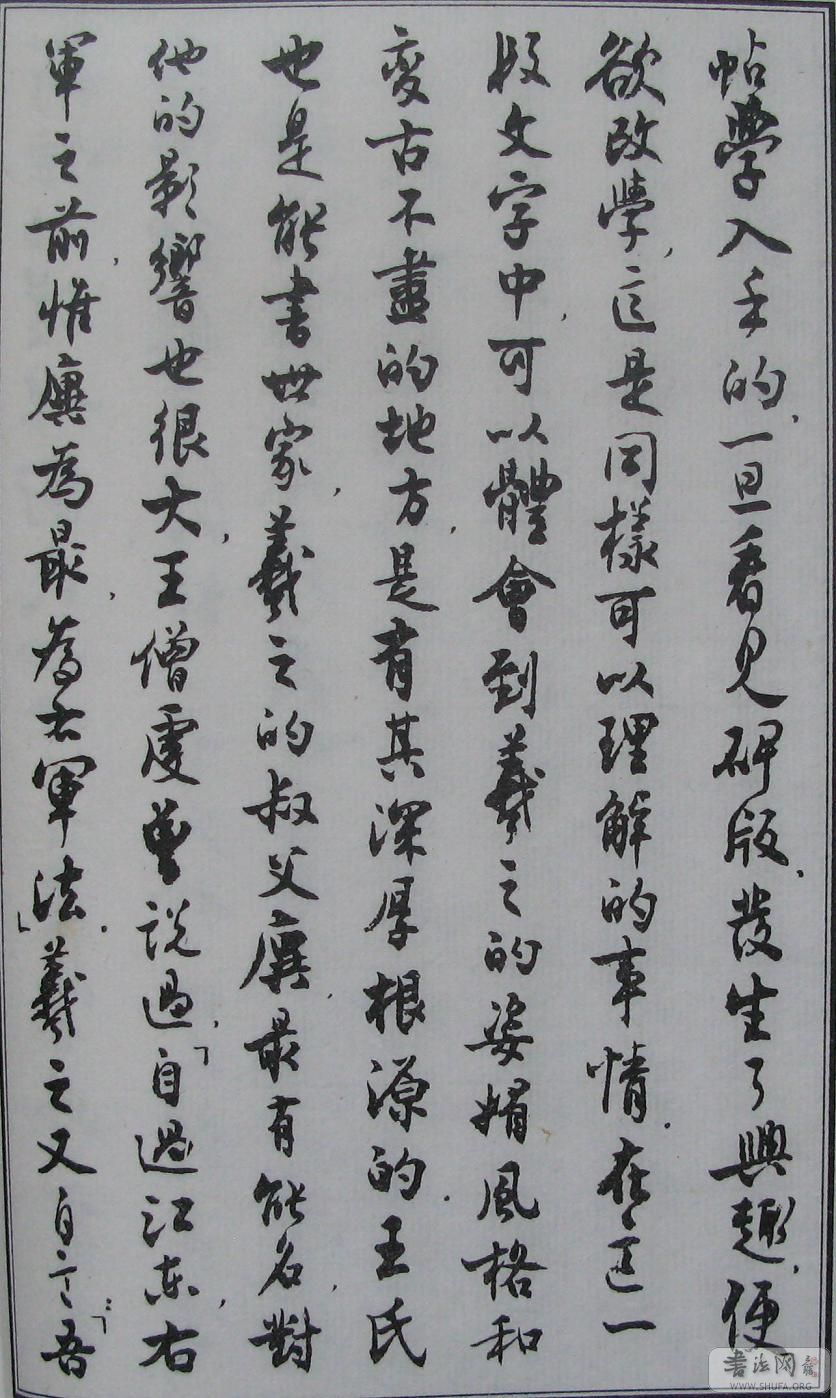 帖學入手的，一旦看見碑版，發生了興趣，便
欲改學，這是同樣可以理解的事情。在這一
段文字中，可以體會到羲之的姿媚風格和
變古不盡的地方，是有其深厚根源的。王氏
也是能書世家，羲之的叔父廙，最有能名，對
他的影響也很大，王僧虔曾說過，「自過江東，右
軍之前，惟廙為最，為右軍法」。羲之又自言：「吾
書法网
WWW.SHUFA.ORG